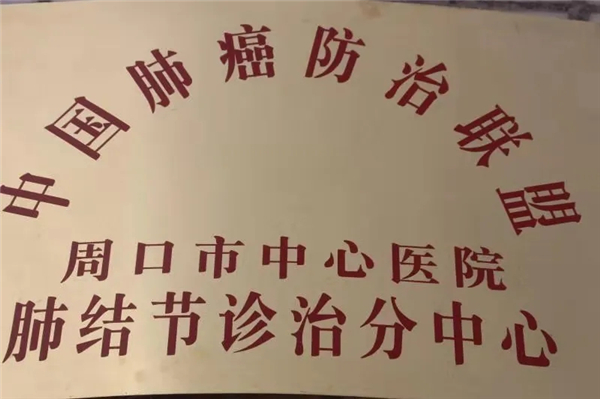 中国肺癌防治联盟
周口市中心医院
肺结节诊治分中心